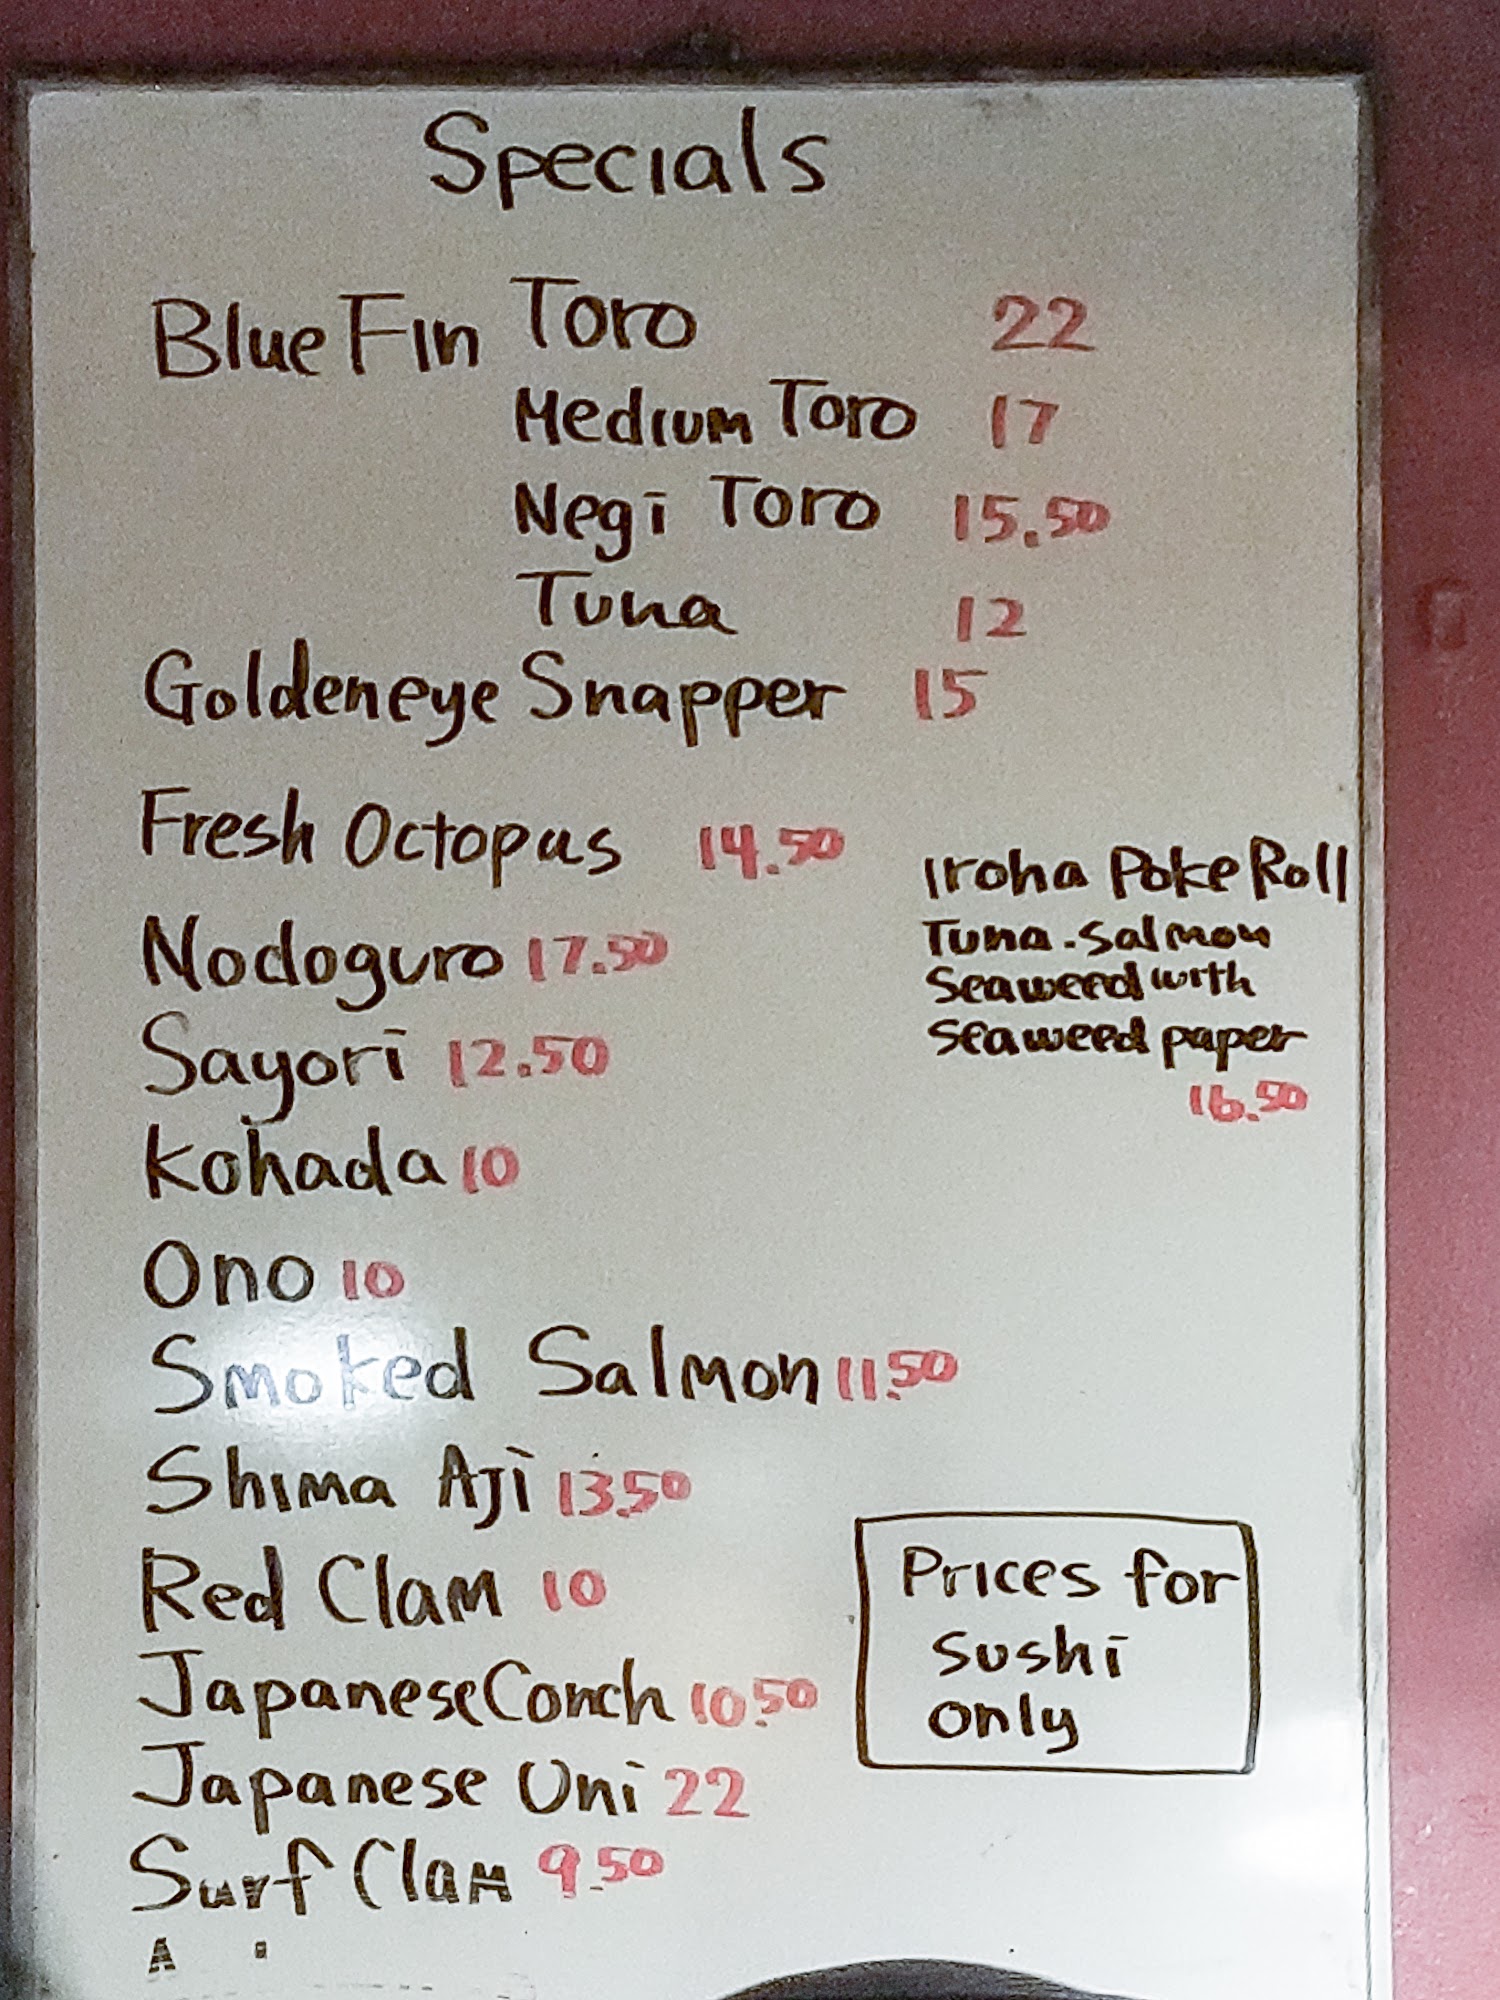 Specials
Blue Fin Toro 22
Medium Toro 17
Negi Toro 15.50
Tuna 12
Goldeneye Snapper 15
Fresh Octopus 14.50
Nodoguro 17.50
Sayori 12.50
Kohada 10
Ono 10
Smoked Salmon 11.50
Shima Aji 13.50
Red Clam 10
Japanese Conch 10.50
Japanese Uni 22
Surf Clam 9.50
Iroha Poke Roll
Tuna.Salmon
Seaweed with
Seaweed paper
16.50
Prices for
sushi
only